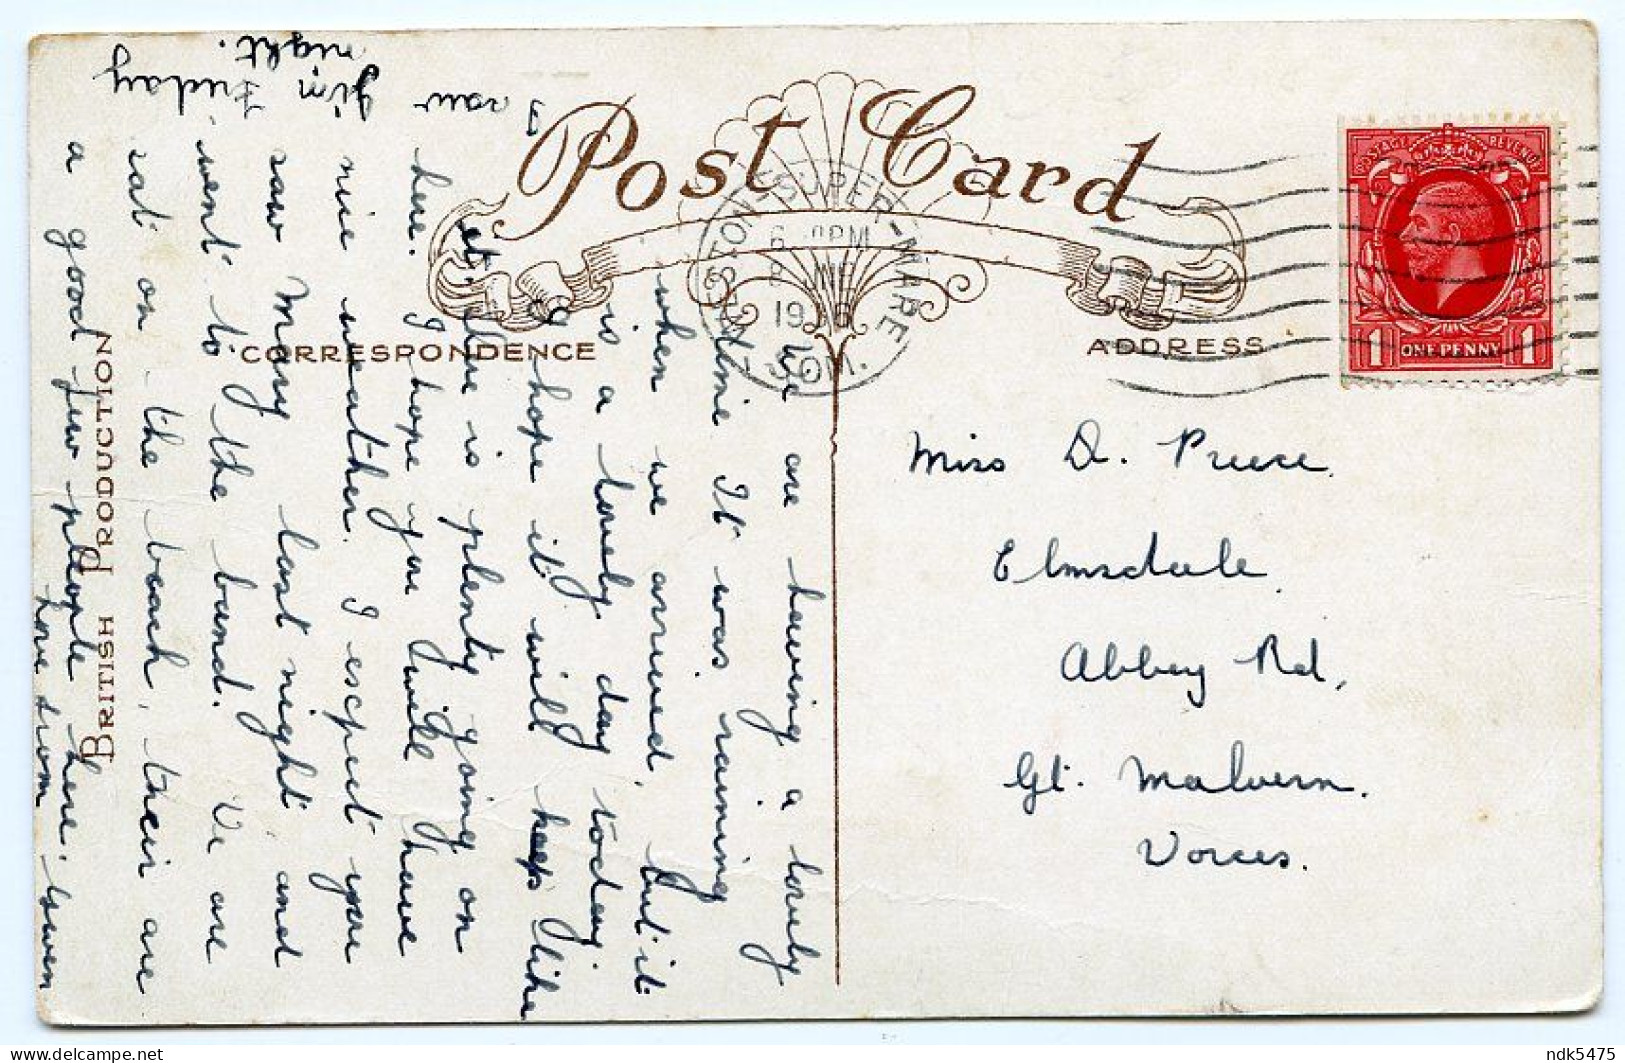 Post Card
CORRESPONDENCE
ADDRESS
BRITISH PRODUCTION
WESTON-SUPER-MARE
SOM.
POSTAGE REVENUE
1 ONE PENNY 1
Miss D. Preece.
Elmsdale.
Abbey Rd,
Gt. Malvern.
Worces.
We are having a lovely
time It was raining
when we arrived, but it
is a lovely day today
I hope it will keep like
it. There is plenty going on
here. I hope you will have
nice weather. I expect you
saw Mary last night and
went to the band. We are
sat on the beach, their are
a good few people here.
love from Gwen
I saw Jim Friday
night.
ndk5475